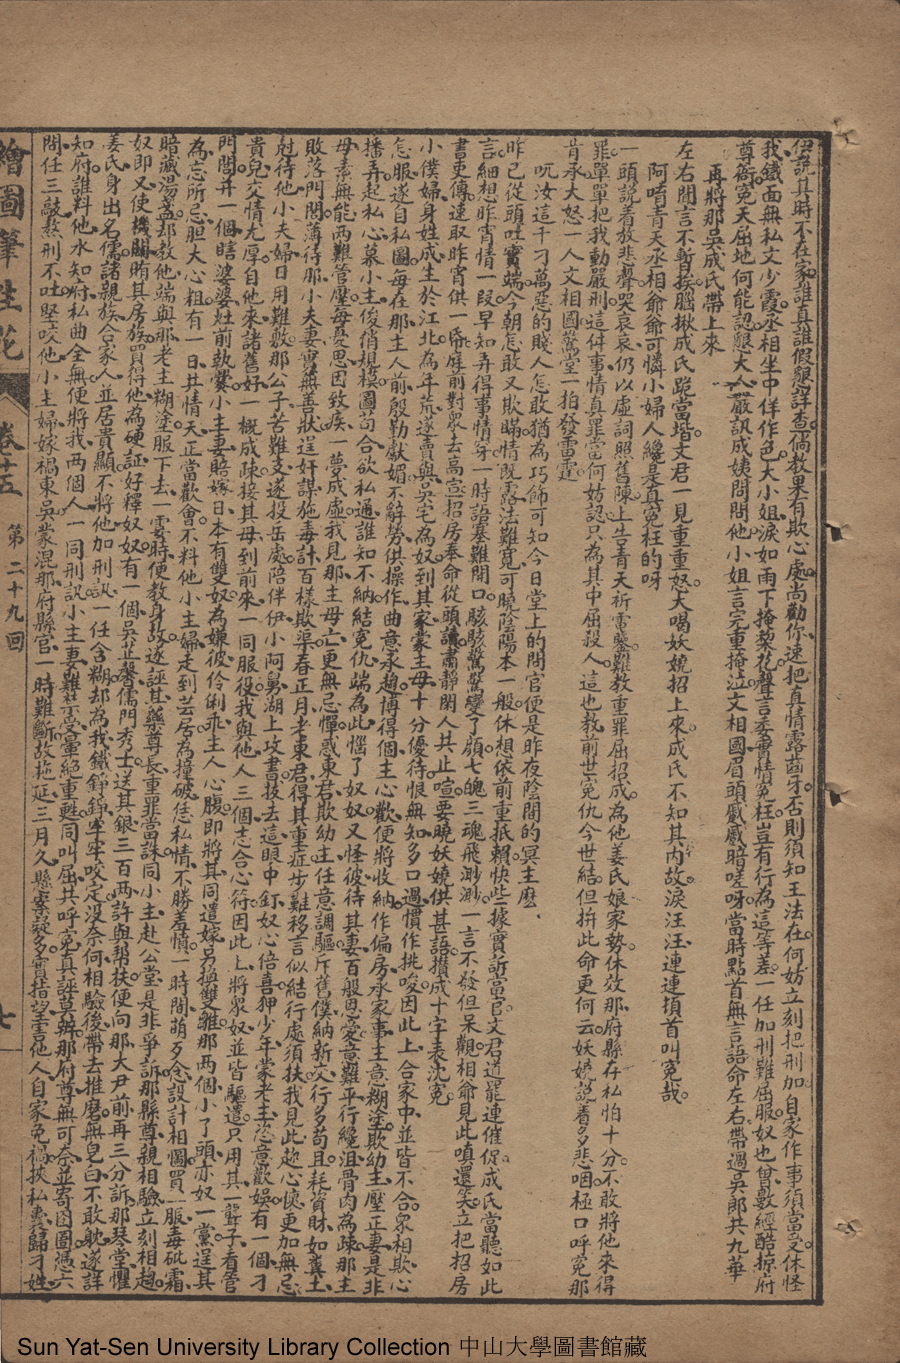 伊說其時不在家誰真誰假懇詳查倘教果有欺心處尚勸你速把真情露齒牙否則須知王法在何妨立刻把刑加自家作事須當受休怪
我鐵面無私丈少霞丞相坐中佯作色大小姐淚如雨下掩棃花聲言委實情寃枉豈有行為這等差一任加刑難屈服奴也曾數經酷掠府
尊衙寃天屈地何能認懇大人嚴訊成姨問問他小姐言完重掩泣文相國眉頭戚戚暗嗟呀當時點首無言語命左右帶過吳郎共九華
再將那吳成氏帶上來
左右聞言不暫挨腦揪成氏跪當堦文君一見重重怒大喝妖嬈招上來成氏不知其內故淚汪汪連連項首叫寃哉
阿唷青天丞相爺爺可憐小婦人纔是真寃枉的呀
一頭說着放悲聲哭哀哀仍以虛詞照舊陳上告青天祈電鑒難教重罪屈招成為他姜氏娘家勢休效那府縣存私怕十分不敢將他來得
罪單單把我動嚴刑這件事情真罪當何妨認只為其中屈殺人這也教前世寃仇今世結但拚此命更何云妖嬈說着多悲咽極口呼寃那
肯承大怒一人文相國驚堂一拍發雷霆
吪汝這千刁萬惡的賤人怎敢猶為巧飾可知今日堂上的問官便是昨夜陰間的冥主麼
昨已從頭吐實端今朝怎敢又欺瞞情既露法難寬可曉陰陽本一般休想依前重抵賴快些據實訴當官文君道罷連催促成氏當聽如此
言細想昨宵情一叚早知弄得事情穿一時語塞難開口駭駭驚驚變了顏七魄三魂飛渺渺一言不發但呆觀相爺見此嗔還笑立把招房
書吏傳速取昨宵供一帋庭前對衆去高宣招房奉命從頭讀肅靜閑人共止喧要曉妖嬈供甚語攢成十字表沈寃
小僕婦身姓成生於江北為年荒遂賣與吳宅為奴到其家蒙主母十分優待恨無知多口過慣作挑唆因此上合家中並皆不合衆相欺心
怎服遂自私圖每在那主人前殷勤獻媚不辭勞供操作曲意承趨博得個主心歡便將收納作偏房承家事主意糊塗欺幼主壓正妻是非
播弄起私心慕小主俊俏規模圖苟合欲私通誰知不納結寃仇端為此惱了奴奴又怪彼待其妻百般恩愛意難平行纔沮骨肉為疎那主
母素無能兩難管壓每憂思因致疾一夢成虛我見那主母亡更無忌憚慼東君欺幼主任意調驅斥舊僕納新交行多苟且耗資財如糞土
敗落門閭薄待那小夫妻實無善狀逞奸謀施毒計百樣欺渠春正月老東君得其重症步難移言似結行處須扶我見此趂心懷更加無忌
尅待他小夫婦日用難敷那公子苦難支遂投岳處陪伴伊小阿舅湖上攻書拔去這眼中釘奴心倍喜狎少年蒙老主恣意歡娛有一個刁
貴兒交情尤厚自他來諸舊好一概成疎接其母到前來一同服役我與他人三個志合心符因此上將衆奴並皆驅遣只用其一聾子看管
門閭井一個瞎婆婆灶前執爨小主妻賠嫁日本有雙奴為嫌彼伶俐乖主人心腹即將其同遣嫁另換雙雛那兩個小丫頭亦奴一黨逞其
為忘所忌胆大心粗有一日共情夫正當歡會不料他小主婦走到芸居為撞破恁私情不勝羞憤一時間萌歹念設計相圖買一服毒砒霜
暗藏湯盞却教他端與那老主糊塗服下去一霎時便教身故遂誣其藥尊長重罪當誅同小主赴公堂是非爭訴那縣尊親相驗立刻相趨
奴即又使機關賄其房族買得他為硬証好釋奴奴有一個吳芷馨儒門秀士送其銀三百兩許與幫扶便向那大尹前再三分訴那琴堂懼
姜氏身出名儒諸親族合家人並居貴顯不將他加刑訊一任含糊却為我鐵錚錚牢牢咬定没奈何相驗後帶去推磨無皂白不敢躭遂詳
知府誰料他水知府私曲全無便將我兩個人一同刑訊小主妻難禁受暈絕重甦同叫屈共呼寃真誣莫辨那府尊無可奈並寄囹圄憑六
問任三敲熬刑不吐堅咬他小主婦嫁禍東吳蒙混那府縣官一時難斷故拖延三月久縣案疑多實指望害他人自家免禍挾私責歸刁姓
繪圖筆生花
卷十五
第二十九回
七
Sun Yat-Sen University Library Collection 中山大學圖書館藏